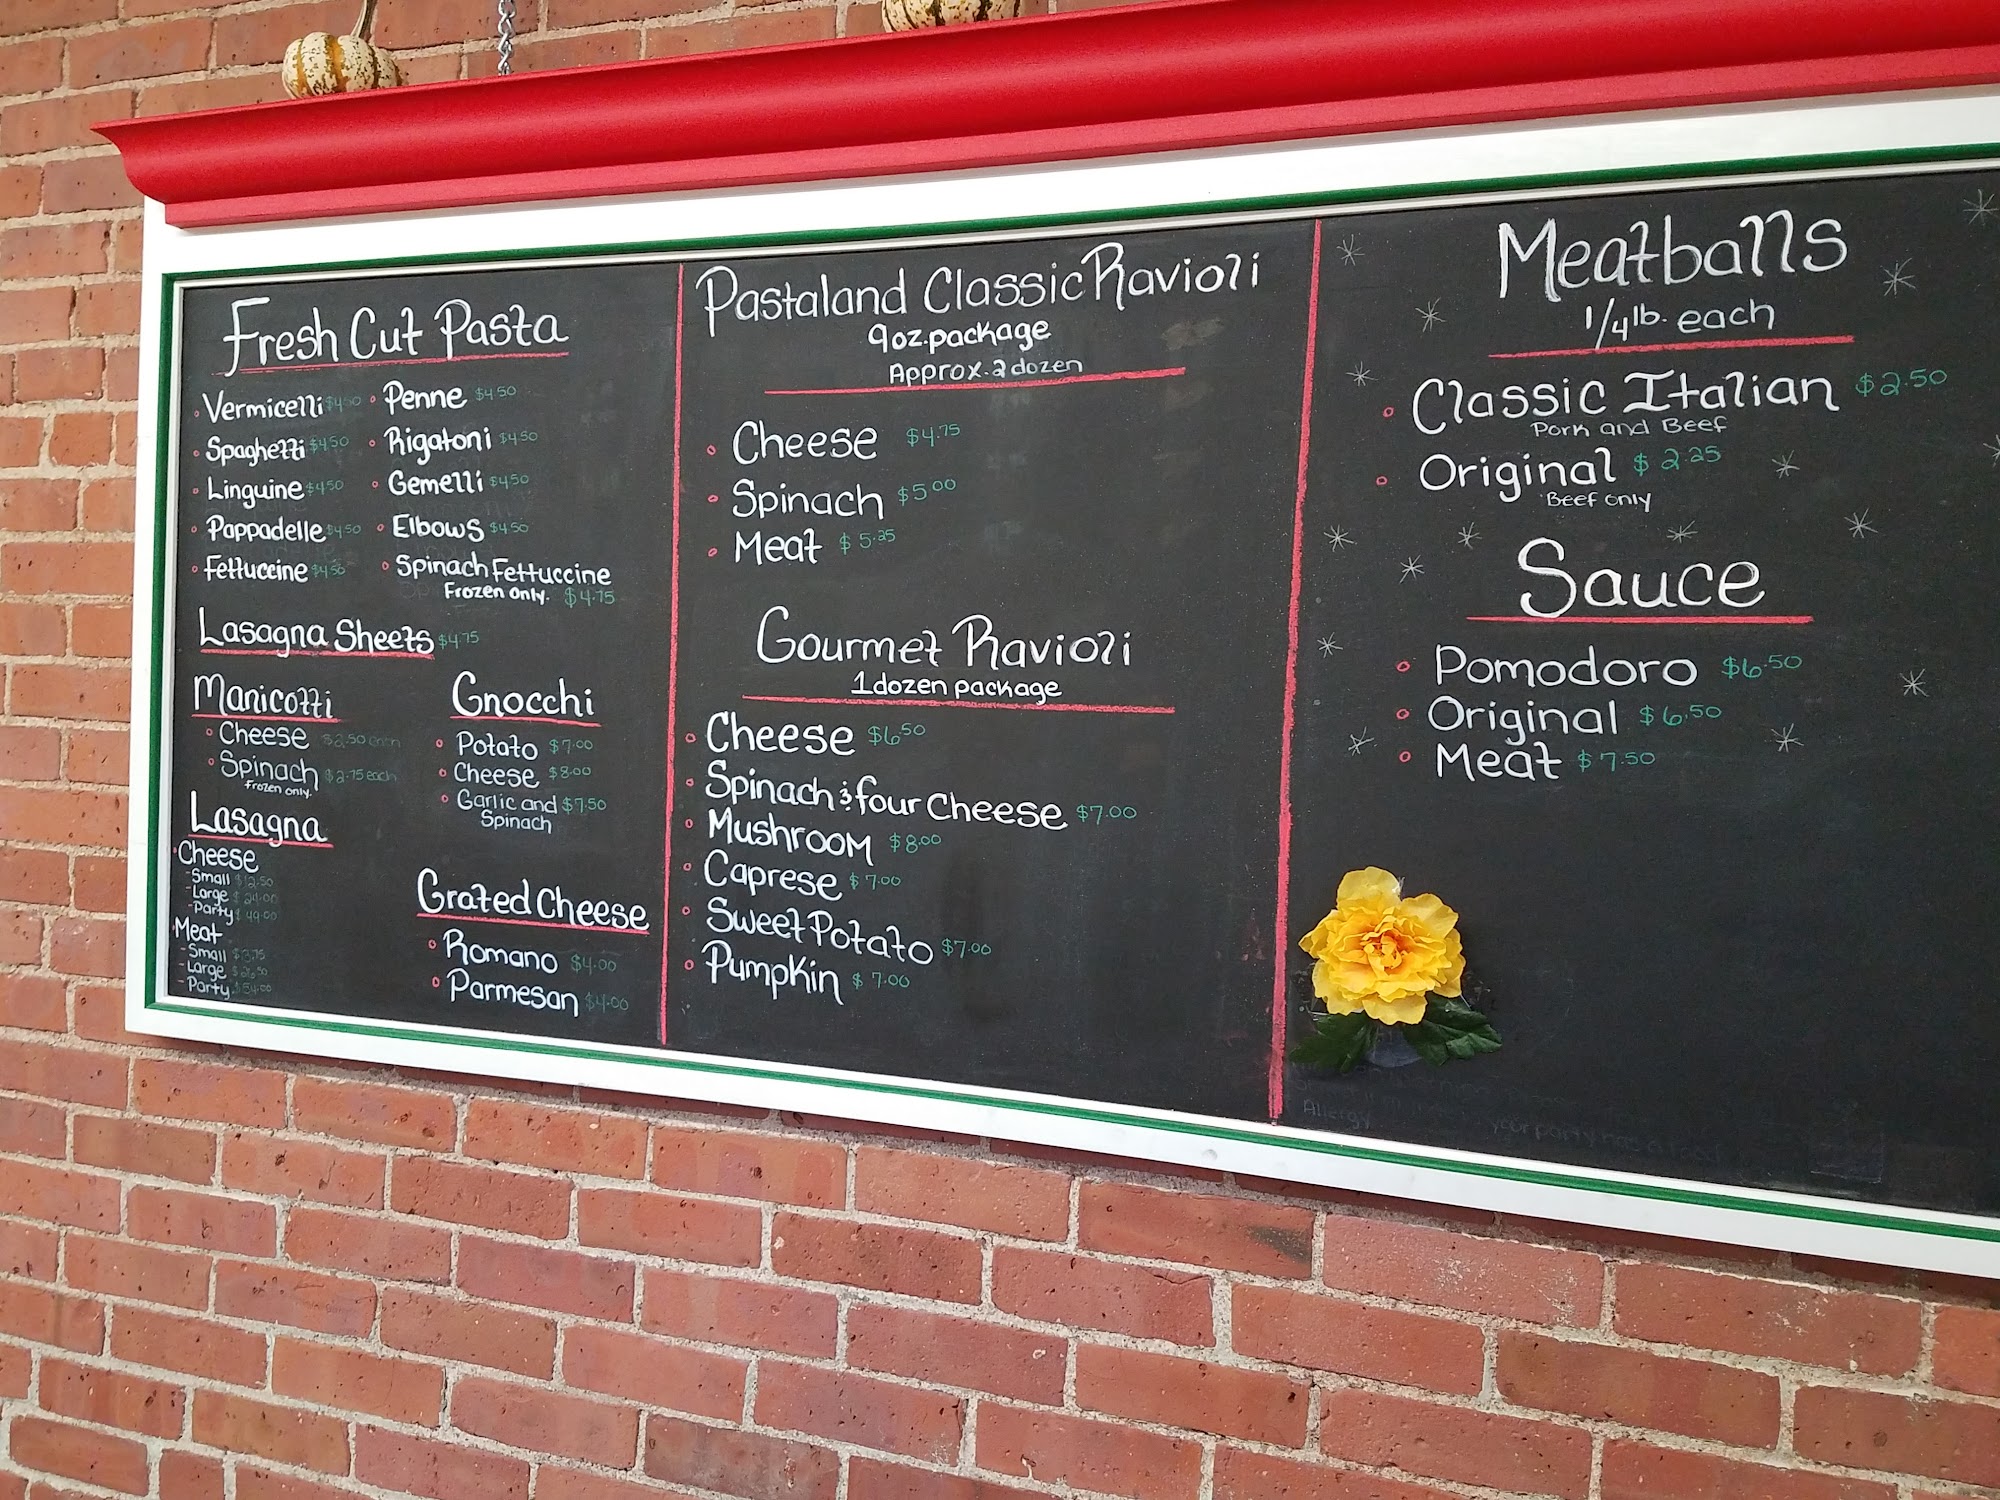 Fresh Cut Pasta
Vermicelli $4.50
Spaghetti $4.50
Linguine $4.50
Pappadelle $4.50
Fettuccine $4.50
Penne $4.50
Rigatoni $4.50
Gemelli $4.50
Elbows $4.50
Spinach Fettuccine
Frozen only. $4.75
Lasagna Sheets $4.75
Manicotti
Cheese $2.50 each
Spinach $2.75 each
Frozen only.
Lasagna
Cheese
-Small $12.50
-Large $24.00
-Party $49.00
Meat
-Small $13.75
-Large $26.50
-Party $54.00
Gnocchi
Potato $7.00
Cheese $8.00
Garlic and $7.50
Spinach
Grated Cheese
Romano $4.00
Parmesan $4.00
Pastaland Classic Ravioli
9oz. package
Approx. 2 dozen
Cheese $4.75
Spinach $5.00
Meat $5.25
Gourmet Ravioli
1 dozen package
Cheese $6.50
Spinach & four Cheese $7.00
Mushroom $8.00
Caprese $7.00
Sweet Potato $7.00
Pumpkin $7.00
Meatballs
1/4 lb. each
Classic Italian $2.50
Pork and Beef
Original $2.25
Beef only
Sauce
Pomodoro $6.50
Original $6.50
Meat $7.50
your party has a food
Allergy